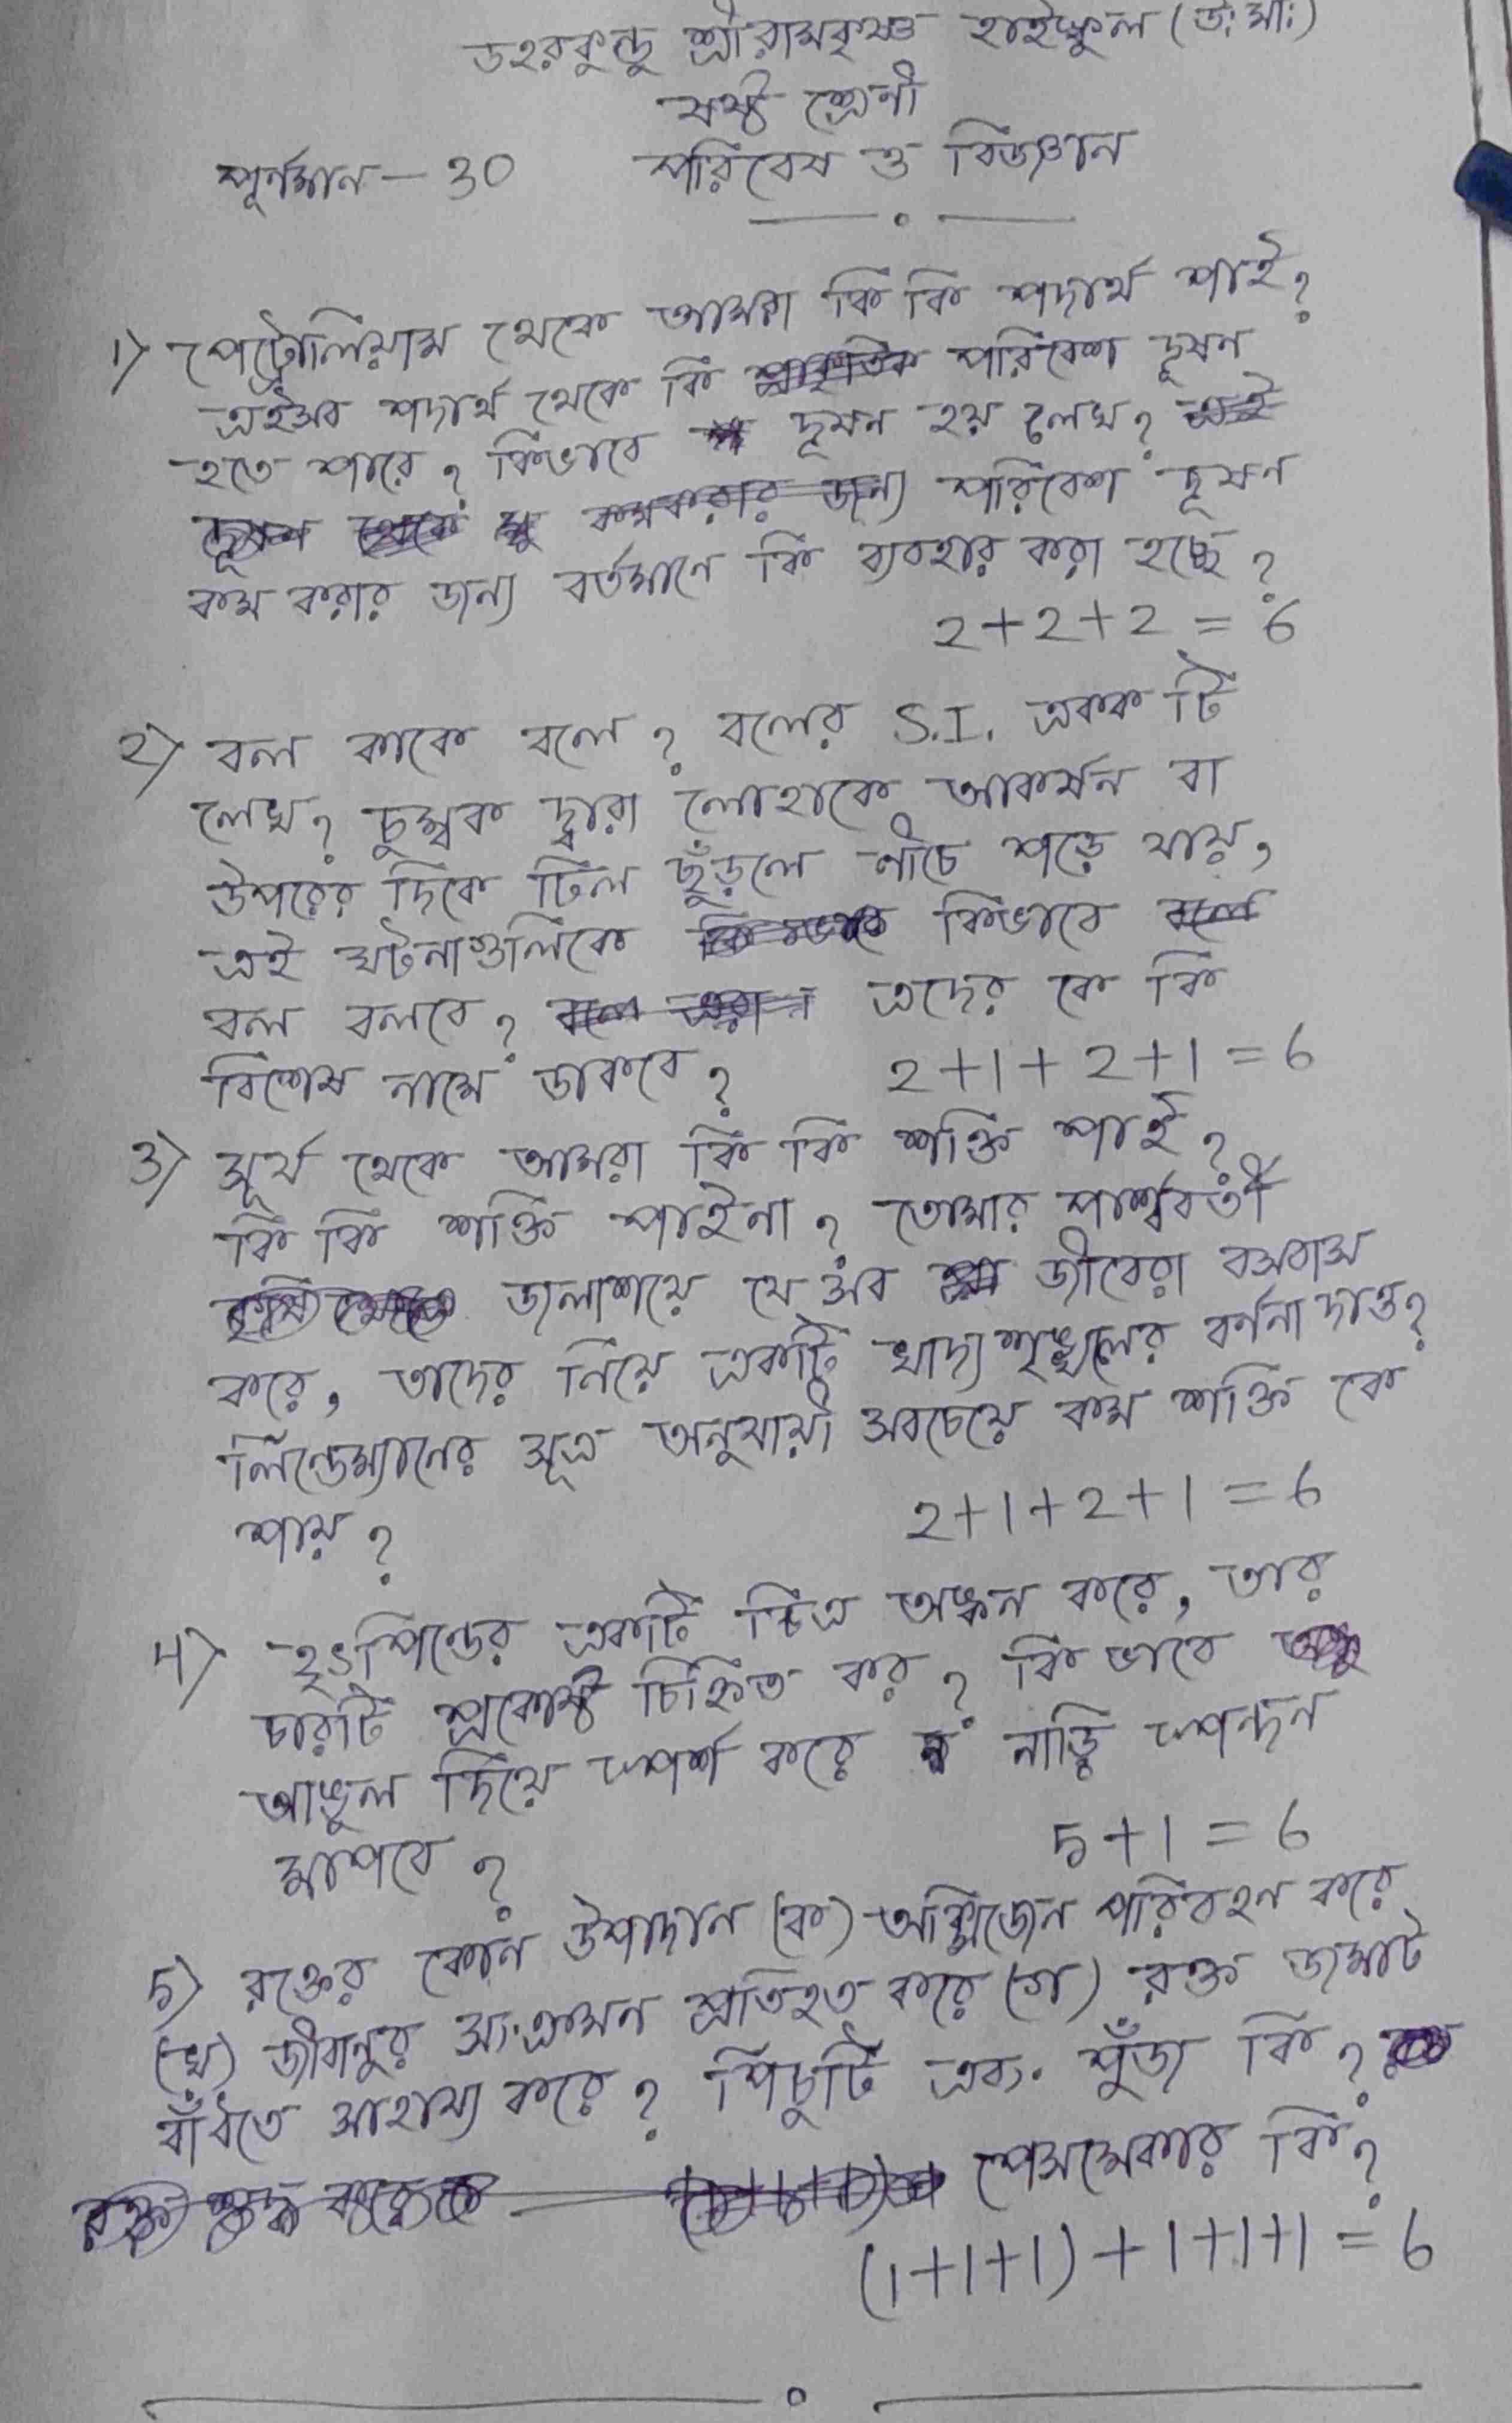 ডহরকুন্ডু শ্রীরামকৃষ্ণ হাইস্কুল (উ: মা:)
ষষ্ঠ শ্রেনী
পূর্নমান - 30 পরিবেষ ও বিজ্ঞান
1) পেট্রোলিয়াম থেকে আমরা কি কি পদার্থ পাই?
এইসব পদার্থ থেকে কি প্রাকৃতিক পরিবেশ দূষন
হতে পারে? কিভাবে দূষন হয় লেখ? এই
দূষন থেকে কমকরার জন্য পরিবেশ দূষন
কম করার জন্য বর্তমানে কি ব্যবহার করা হচ্ছে?
2+2+2 = 6
2) বল কাকে বলে? বলের S.I. একক টি
লেখ? চুম্বক দ্বারা লোহাকে আকর্ষন বা
উপরের দিকে ঢিল ছুঁড়লে নীচে পড়ে যায়,
এই ঘটনাগুলিকে কিভাবে বলে
বল বলবে? বলে এরা এদের কে কি
বিশেষ নামে ডাকবে? 2+1+2+1=6
3) সূর্য থেকে আমরা কি কি শক্তি পাই?
কি কি শক্তি পাইনা? তোমার পার্শ্ববর্তী
জলাশয়ে যে সব জীবেরা বসবাস
করে, তাদের নিয়ে একটি খাদ্য শৃঙ্খলের বর্ননা দাও?
লিন্ডেম্যানের সূত্র অনুযায়ী সবচেয়ে কম শক্তি কে
পায়? 2+1+2+1=6
4) হৃৎপিন্ডের একটি চিত্র অঙ্কন করে, তার
চারটি প্রকোষ্ঠ চিহ্নিত কর? কি ভাবে
আঙুল দিয়ে স্পর্শ করে নাড়ি স্পন্দন
মাপবে? 5+1=6
5) রক্তের কোন উপাদান (ক) অক্সিজেন পরিবহন করে
(খ) জীবানুর সংক্রামন প্রতিহত করে (গ) রক্ত জমাট
বাঁধতে সাহায্য করে? পিচুটি এবং পুঁজ কি?
পেসমেকার কি?
(1+1+1)+1+1+1=6